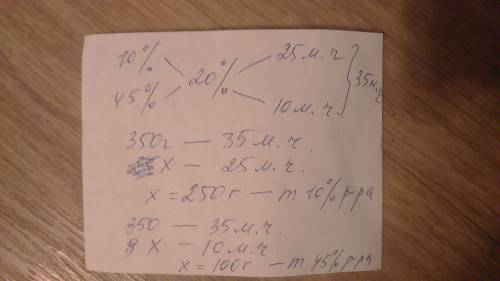 10% 25 м.ч
20% 35 м.ч
45% 10 м.ч.
350г — 35 м.ч.
x — 25 м.ч.
x = 250 г — m 10% р-ра
350 — 35 м.ч.
x — 10 м.ч
x = 100 г. — m 45% р-ра